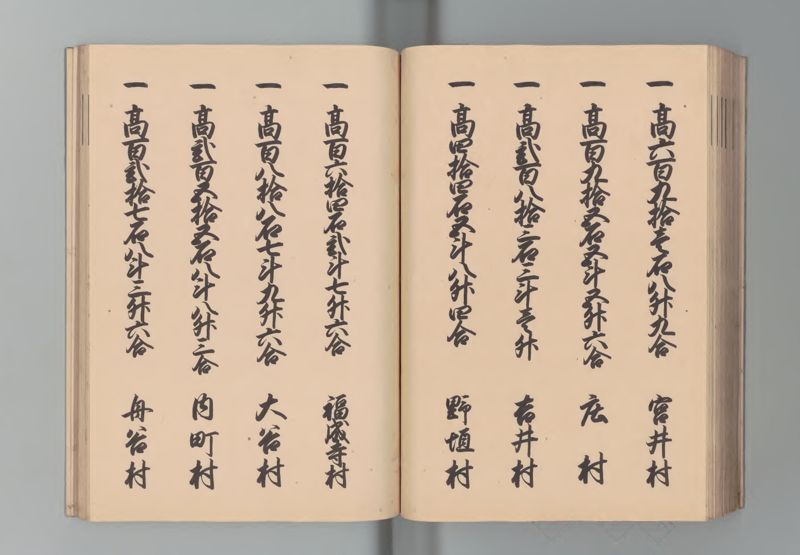 一 高六百九拾壱石八升九合 宮井村
一 高百九拾五石五斗五升六合 庄村
一 高弐百八拾三石三斗壱升 吉井村
一 高四拾四石五斗八升四合 野垣村
一 高百六拾四石弐斗七升六合 福成寺村
一 高百八拾八石七斗九升六合 大谷村
一 高弐百五拾五石八斗八升三合 内町村
一 高百弐拾七石八斗三升六合 舟谷村